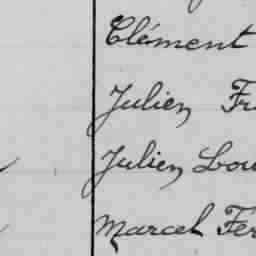 Clément
Julien Fr
Julien Lou
Marcel Fer